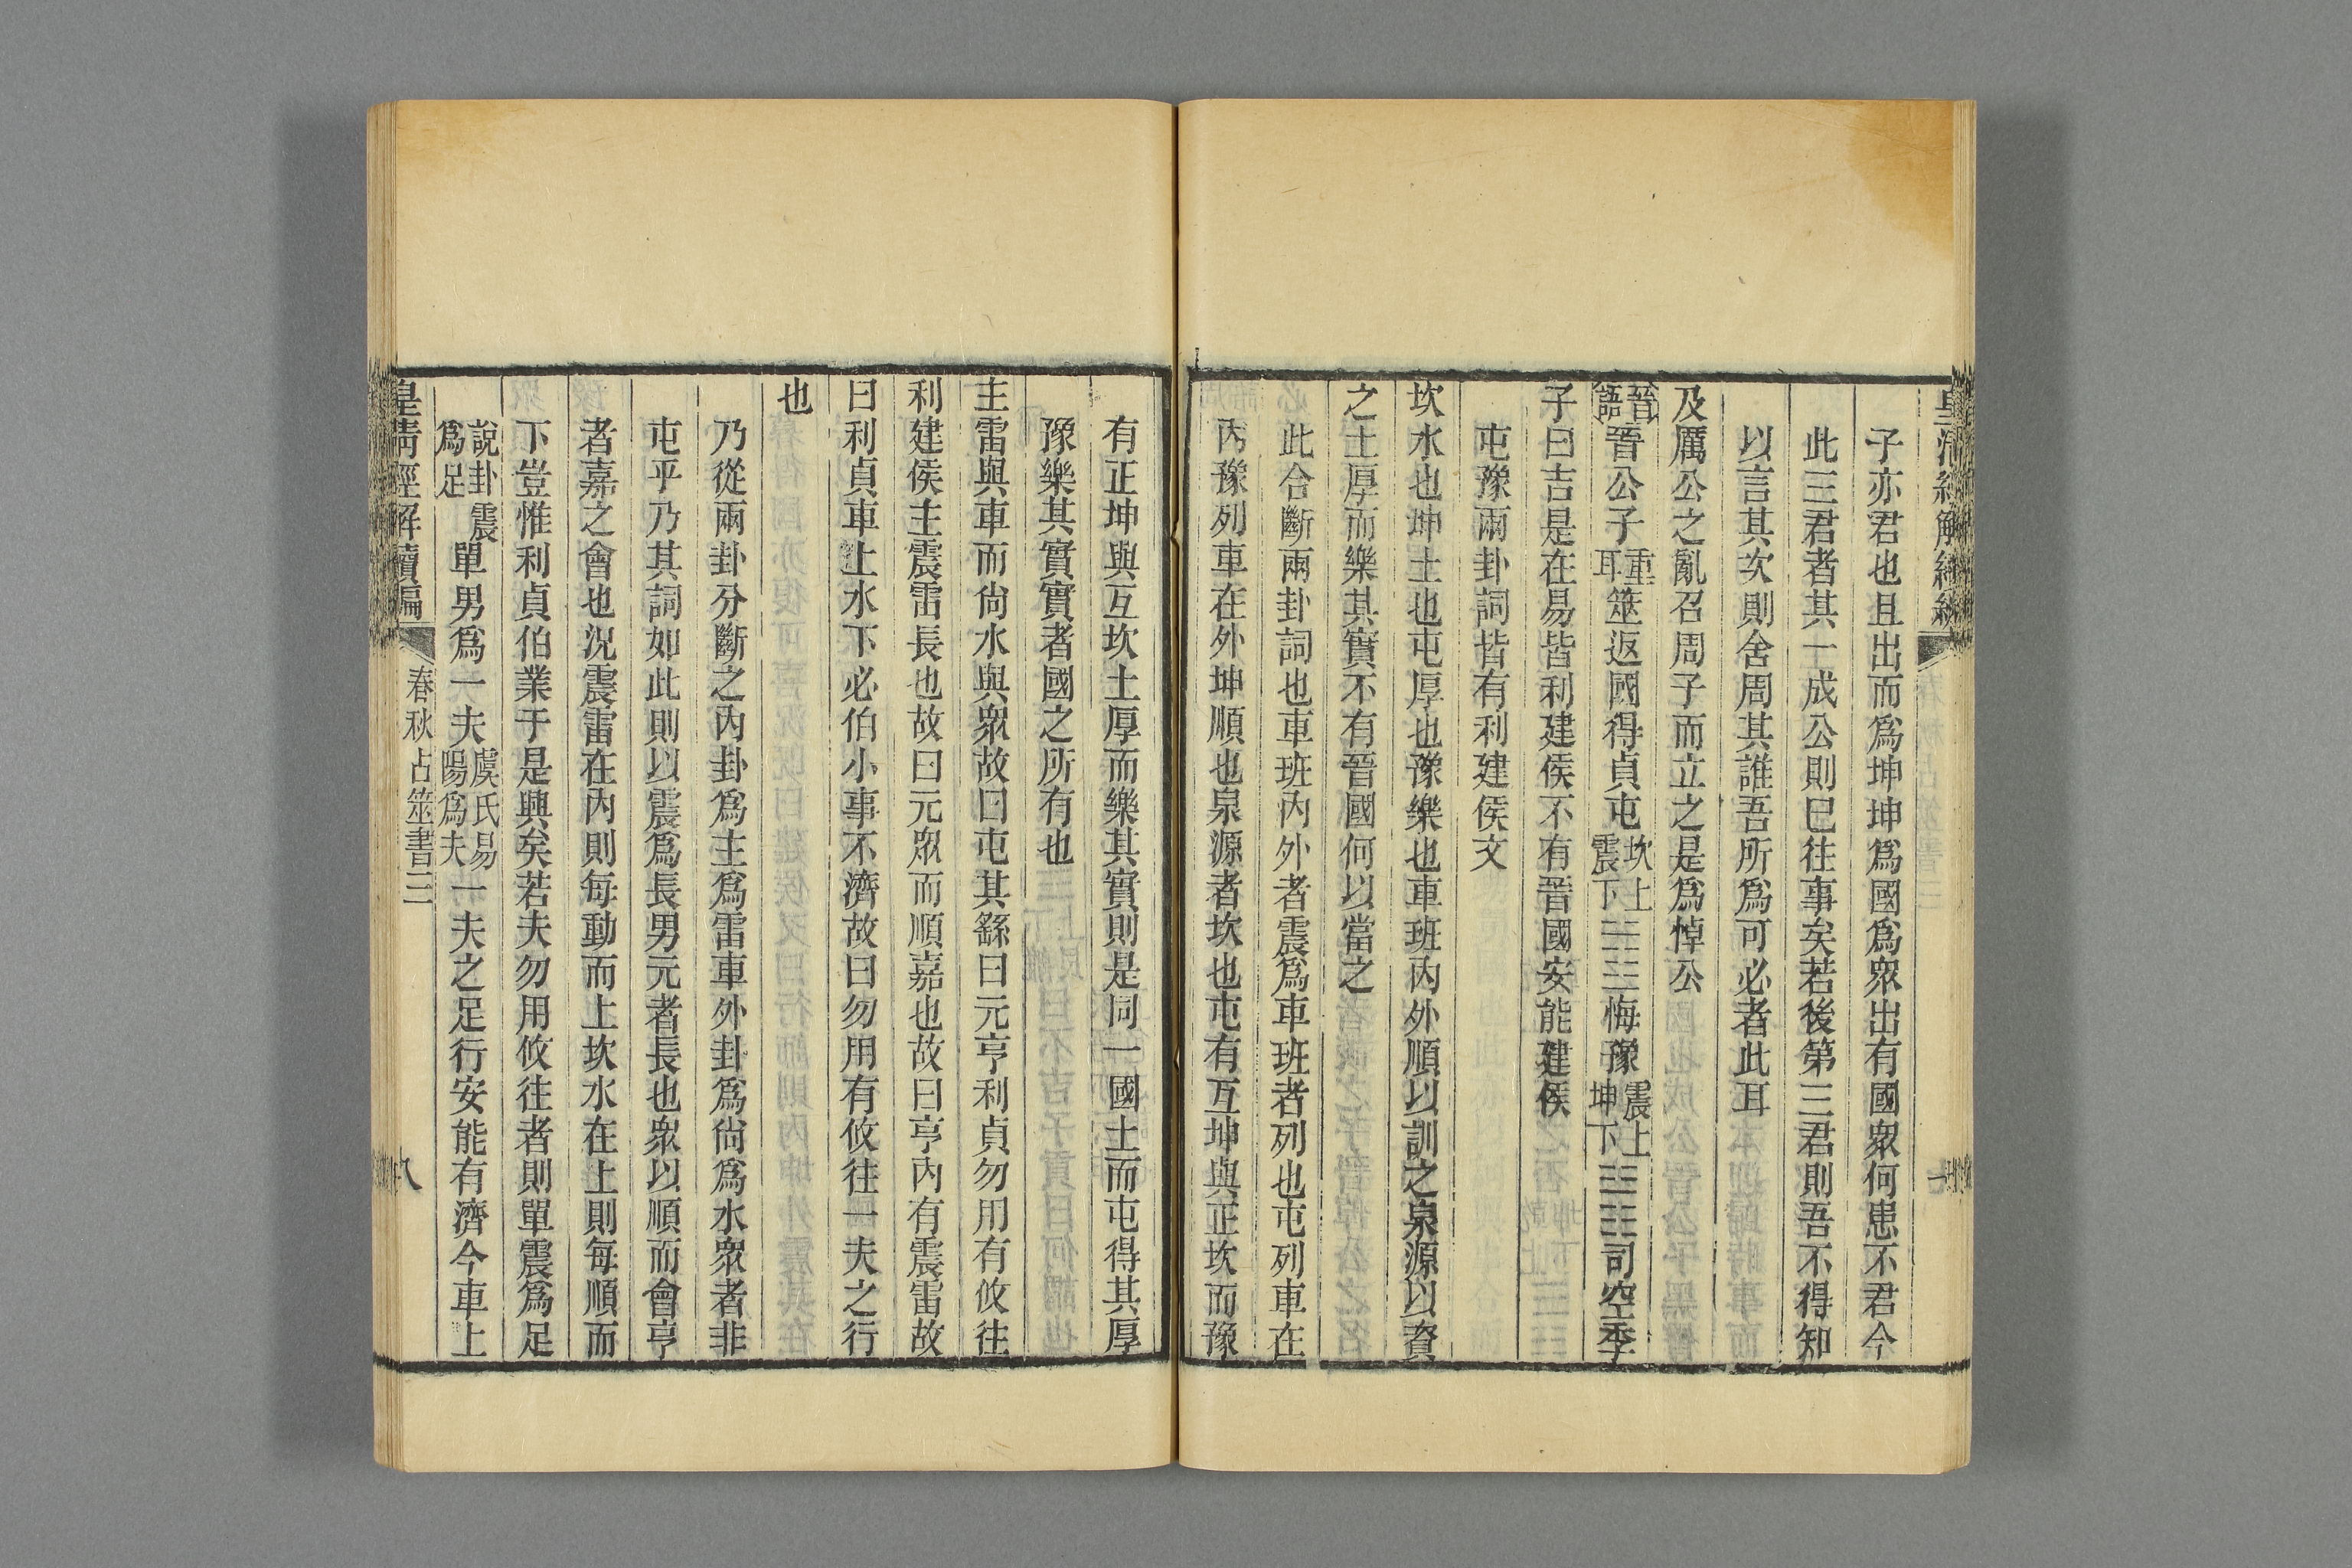 皇清經解續編
子亦君也且出而爲坤坤爲國爲衆出有國衆何患不君今
此三君者其一成公則巳往事矣若後第三君則吾不得知
以言其次則舍周其誰吾所爲可必者此耳
及厲公之亂召周子而立之是爲悼公
晉語晉公子重耳筮返國得貞屯坎上震下☵☳悔豫震上坤下☳☷司空季
子曰吉是在易皆利建侯不有晉國安能建侯
屯豫兩卦詞皆有利建侯文
坎水也坤土也屯厚也豫樂也車班內外順以訓之泉源以資
之土厚而樂其實不有晉國何以當之
此合斷兩卦詞也車班內外者震爲車班者列也屯列車在
內豫列車在外坤順也泉源者坎也屯有互坤與正坎而豫
有正坤與互坎土厚而樂其實則是同一國土而屯得其厚
豫樂其實實者國之所有也
主雷與車而尙水與衆故曰屯其繇曰元亨利貞勿用有攸往
利建侯主震雷長也故曰元衆而順嘉也故曰亨內有震雷故
曰利貞車上水下必伯小事不濟故曰勿用有攸往一夫之行
也
乃從兩卦分斷之內卦爲主爲雷車外卦爲尙爲水衆者非
屯乎乃其詞如此則以震爲長男元者長也衆以順而會亨
者嘉之會也況震雷在內則每動而上坎水在上則每順而
下豈惟利貞伯業于是興矣若夫勿用攸往者則單震爲足
說卦震爲足單男爲一夫虞氏易陽爲夫一夫之足行安能有濟今車上
皇清經解續編
春秋占筮書三
八